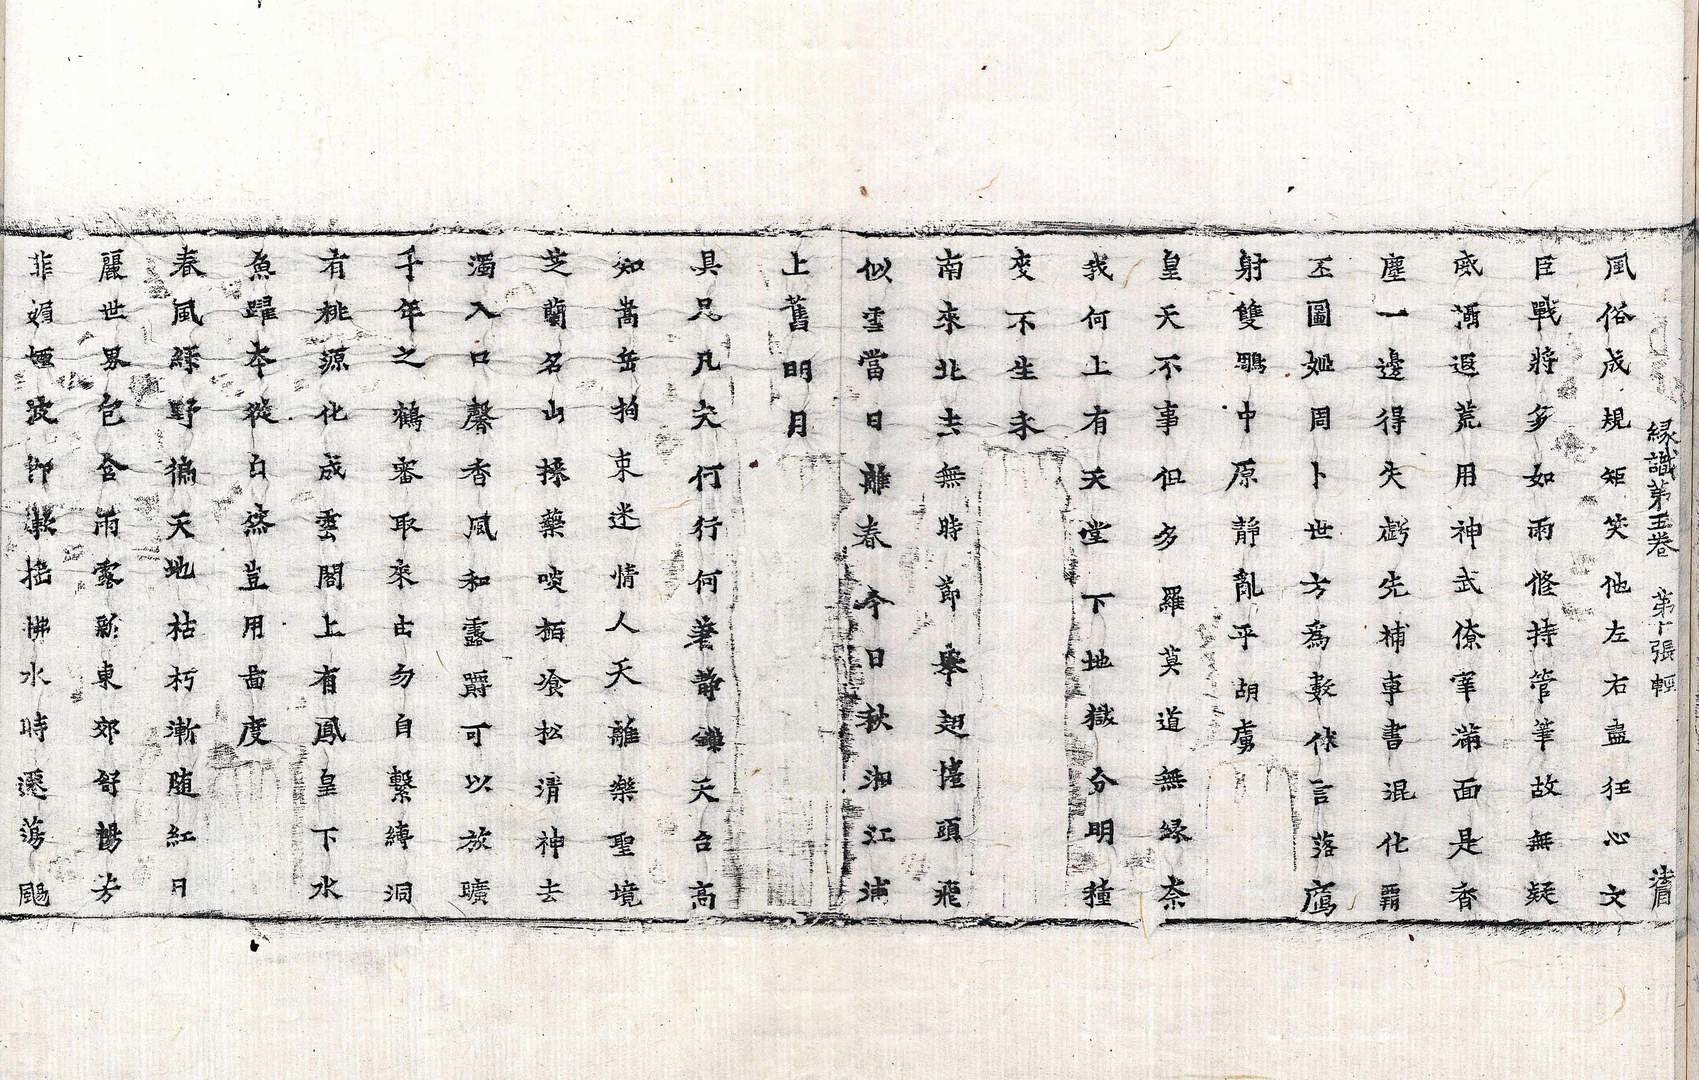 緣識第五卷 第十張 輕
風俗成規矩笑他左右盡狂心文
臣戰將多如雨修持管筆故無疑
咸滿遐荒用神武僚宰滿面是香
塵一邊得失虧先補車書混化霸
丕圖姬周卜世方為數休言落鴈
射雙鵰中原靜亂平胡虜
皇天不事但多羅莫道無緣奈
我何上有天堂下地獄分明種
变不生禾
南來北去無時節舉翅擡頭飛
似雪當日離春今日秋湘江浦
上舊明月
具凡凡夫何行何業靜鎮天台高
知嵩岳拘束迷情人天離樂聖境
芝蘭名山採藥啖栢飡松清神去
濁入口馨香風和露爵可以放曠
千年之鶴審取來由勿自繫縛洞
有桃源化成雲閣上有鳳皇下水
魚躍本從自然豈用啚度
春風綠野徧天地枯朽漸随紅日
麗世界包含雨露新東郊舒暢芳
菲媚煙波御漱搖怫水時還蕩颺